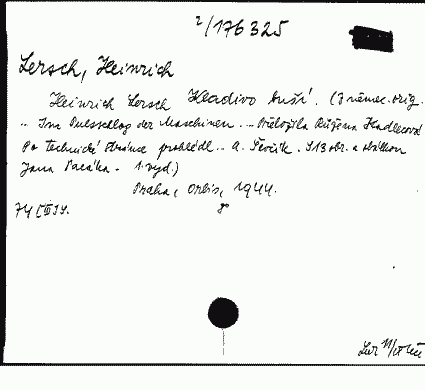 2/176325
Lersch, Heinrich
Heinrich Lersch Hladivo buší. (Z němec. orig.
.. Im Pulsschlag der Maschinen... Přeložila Růžena Hadlecová
Po technické stránce prohlédl.. A. Ševčík. S 13 obr. a obálkou
Jana Pacáka. 1. vyd.)
Praha, Orbis, 1944.
8°